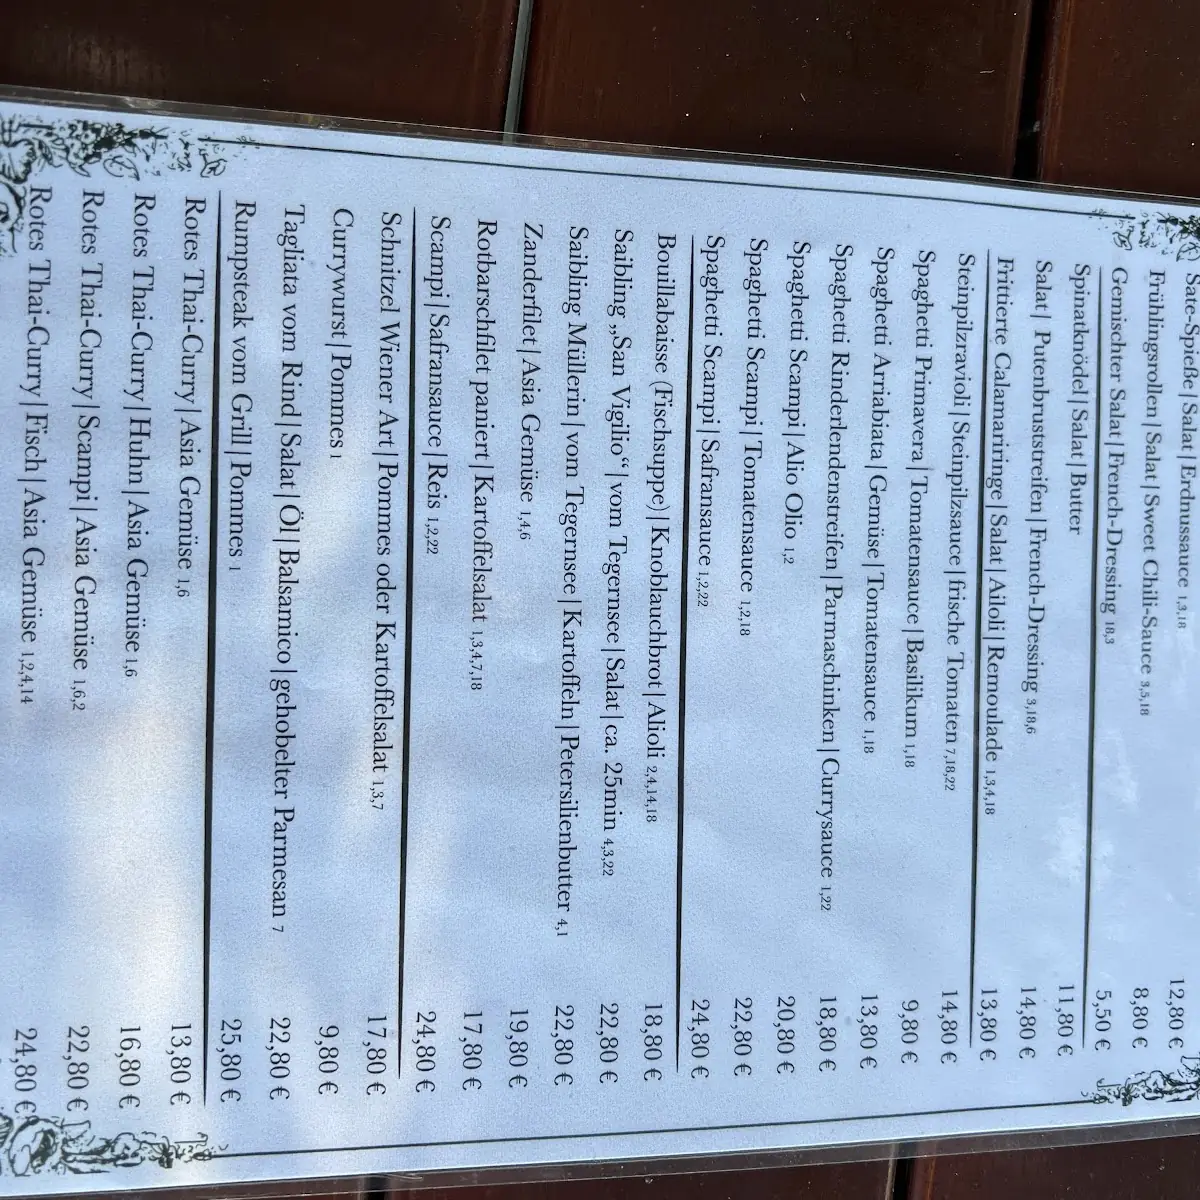 Saté-Spieße | Salat | Erdnusssauce 1,3,18 12,80 €
Frühlingsrollen | Salat | Sweet Chili-Sauce 3,5,18 8,80 €
Gemischter Salat | French-Dressing 18,3 5,50 €
Spinatknödel | Salat | Butter 11,80 €
Salat | Putenbruststreifen | French-Dressing 3,18,6 14,80 €
Frittierte Calamariringe | Salat | Ailoli | Remoulade 1,3,4,18 13,80 €
Steinpilzravioli | Steinpilzsauce | frische Tomaten 7,18,22 14,80 €
Spaghetti Primavera | Tomatensauce | Basilikum 1,18 9,80 €
Spaghetti Arriabiata | Gemüse | Tomatensauce 1,18 13,80 €
Spaghetti Rinderlendenstreifen | Parmaschinken | Currysauce 1,22 18,80 €
Spaghetti Scampi | Alio Olio 1,2 20,80 €
Spaghetti Scampi | Tomatensauce 1,2,18 22,80 €
Spaghetti Scampi | Safransauce 1,2,22 24,80 €
Bouillabaisse (Fischsuppe) | Knoblauchbrot | Alioli 2,4,14,18 18,80 €
Saibling „San Vigilio“ | vom Tegernsee | Salat | ca. 25min 4,3,22 22,80 €
Saibling Müllerin | vom Tegernsee | Kartoffeln | Petersilienbutter 4,1 22,80 €
Zanderfilet | Asia Gemüse 1,4,6 19,80 €
Rotbarschfilet paniert | Kartoffelsalat 1,3,4,7,18 17,80 €
Scampi | Safransauce | Reis 1,2,22 24,80 €
Schnitzel Wiener Art | Pommes oder Kartoffelsalat 1,3,7 17,80 €
Currywurst | Pommes 1 9,80 €
Tagliata vom Rind | Salat | Öl | Balsamico | gehobelter Parmesan 7 22,80 €
Rumpsteak vom Grill | Pommes 1 25,80 €
Rotes Thai-Curry | Asia Gemüse 1,6 13,80 €
Rotes Thai-Curry | Huhn | Asia Gemüse 1,6 16,80 €
Rotes Thai-Curry | Scampi | Asia Gemüse 1,6,2 22,80 €
Rotes Thai-Curry | Fisch | Asia Gemüse 1,2,4,14 24,80 €